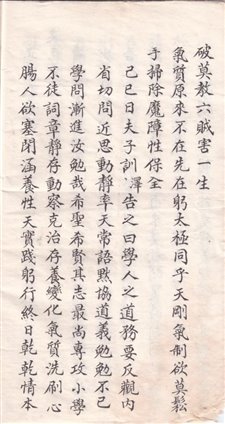 破莫教六賊害一生
氣質原來不在先在躬太極同乎天剛氣制欲莫鬆
手掃除魔障性保全
己巳日夫子訓澤告之曰學人之道務要反觀內
省切問近思動靜率天常語默協道義勉勉不已
學問漸進汝勉哉希聖希賢其志最尚專攻小學
不徒詞章靜存動察克治存養變化氣質洗刷心
腸人欲塞閉涵養性天實踐躬行終日乾乾情本